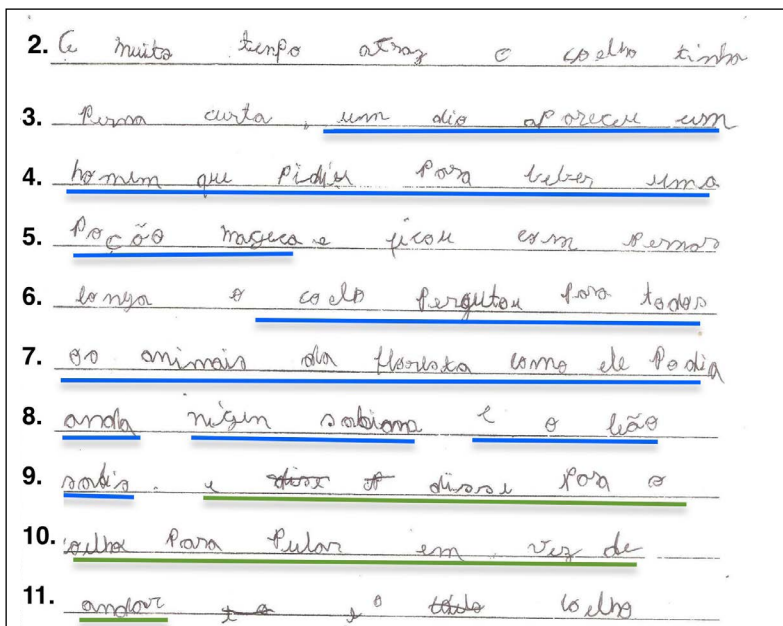 2. A muito tenpo atraz o coelho tinha
3. Perna curta, um dia apareceu um
4. homem que pidiu Para beber uma
5. Poção mageca e ficou com Pernas
6. longa o coelo Pergutou Para todos
7. os animais da floresta como ele Podia
8. anda nigen sabiana e o leão
9. sabis. e disse Para o
10. coelho Para Pular em vez de
11. andar e o coelho